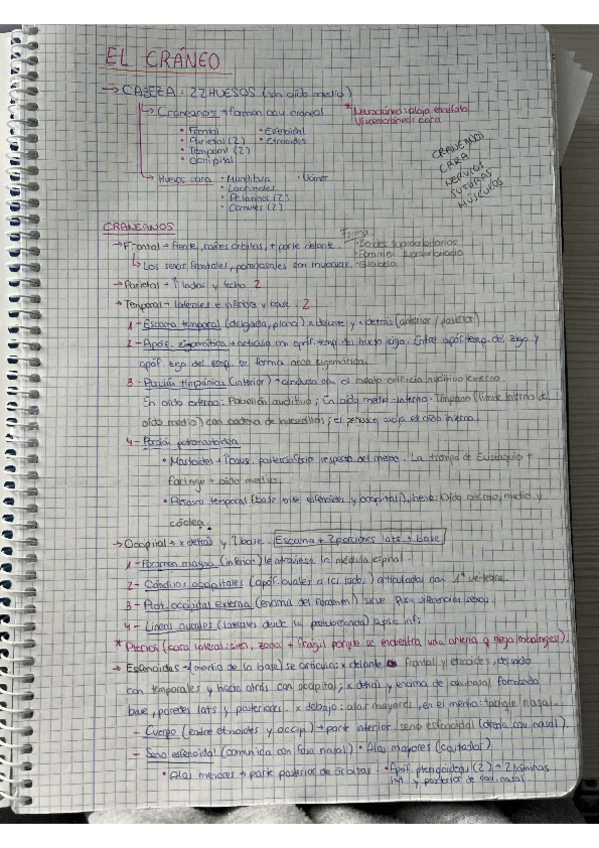 EL CRÁNEO
→ CABEZA · 22 HUESOS (sin oído medio)
↳ Craneanos → forman cav craneal
* Neurocráneo: aloja encéfalo
Viscerocráneo: cara
• Frontal • Esfenoidal
• Parietal (2) • Etmoides
• Temporal (2)
• Occipital
↳ Huesos cara • Mandíbula • Vómer
• Lacrimales
• Palatinos (2)
• Cornetes (2)
CRANEANOS
CARA
NERVIOS
SUTURAS
MÚSCULOS
CRANEANOS
→ Frontal → frente, órbitas, + parte delante.
Forma:
· Bordes supraorbitarios
· Foramen supraorbitario
· Glabela
↳ Los senos frontales, paranasales son
→ Parietal → lados y techo 2
→ Temporal → laterales e inferior y base · 2
1 - Escama temporal (delgada, plana) x delante y + detrás (anterior / posterior)
2 - Apóf. zigomática → articula con apóf. temp. del hueso zigo. Entre apóf. temp. del zigo y
apóf. zigo del temp. se forma arco zigomático.
3 - Porción timpánica (inferior) → conducto con el meato orificio auditivo externo.
En oído externo: Pabellón auditivo; En oído medio-interno: Tímpano (límite interno del
oído medio) con cadena de huesecillos; el oído interno.
4 - Porción petromastoidea
• Mastoides → posterior respecto del meato. La trompa de Eustaquio +
faringe → oído medio.
• Peñasco temporal (base entre esfenoides y occipital), tiene: oído externo, medio y
cóclea.
→ Occipital → x detrás y base. Escama + 2 porciones lats + base
1 - Foramen magno (inferior) le atraviesa la médula espinal.
2 - Cóndilos occipitales (apóf. ovales a los lados) articulados con 1ª vértebra.
3 - Prot. occipital externa (encima del foramen) sirve para diferenciar
4 - Líneas nucales (laterales desde la protuberancia)
* Pterion (cara lateral: sien, zona + frágil porque se encuentra una arteria q riega meninges).
→ Esfenoides → (medio de la base) se articula: x delante frontal y etmoides, de lado
con temporales y hacia atrás con occipital; x detrás y encima de cav nasal formando
base, paredes lats y posteriores. x debajo: alas mayores, en el medio: tabique nasal.
- Cuerpo (entre etmoides y occip) → parte interior seno esfenoidal (drena cav. nasal).
- Seno esfenoidal (comunica con fosa nasal) • Alas mayores (costados)
• Alas menores → parte posterior de órbitas • Apóf. pterigoideas (2) → 2 láminas
y posterior de cav. nasal